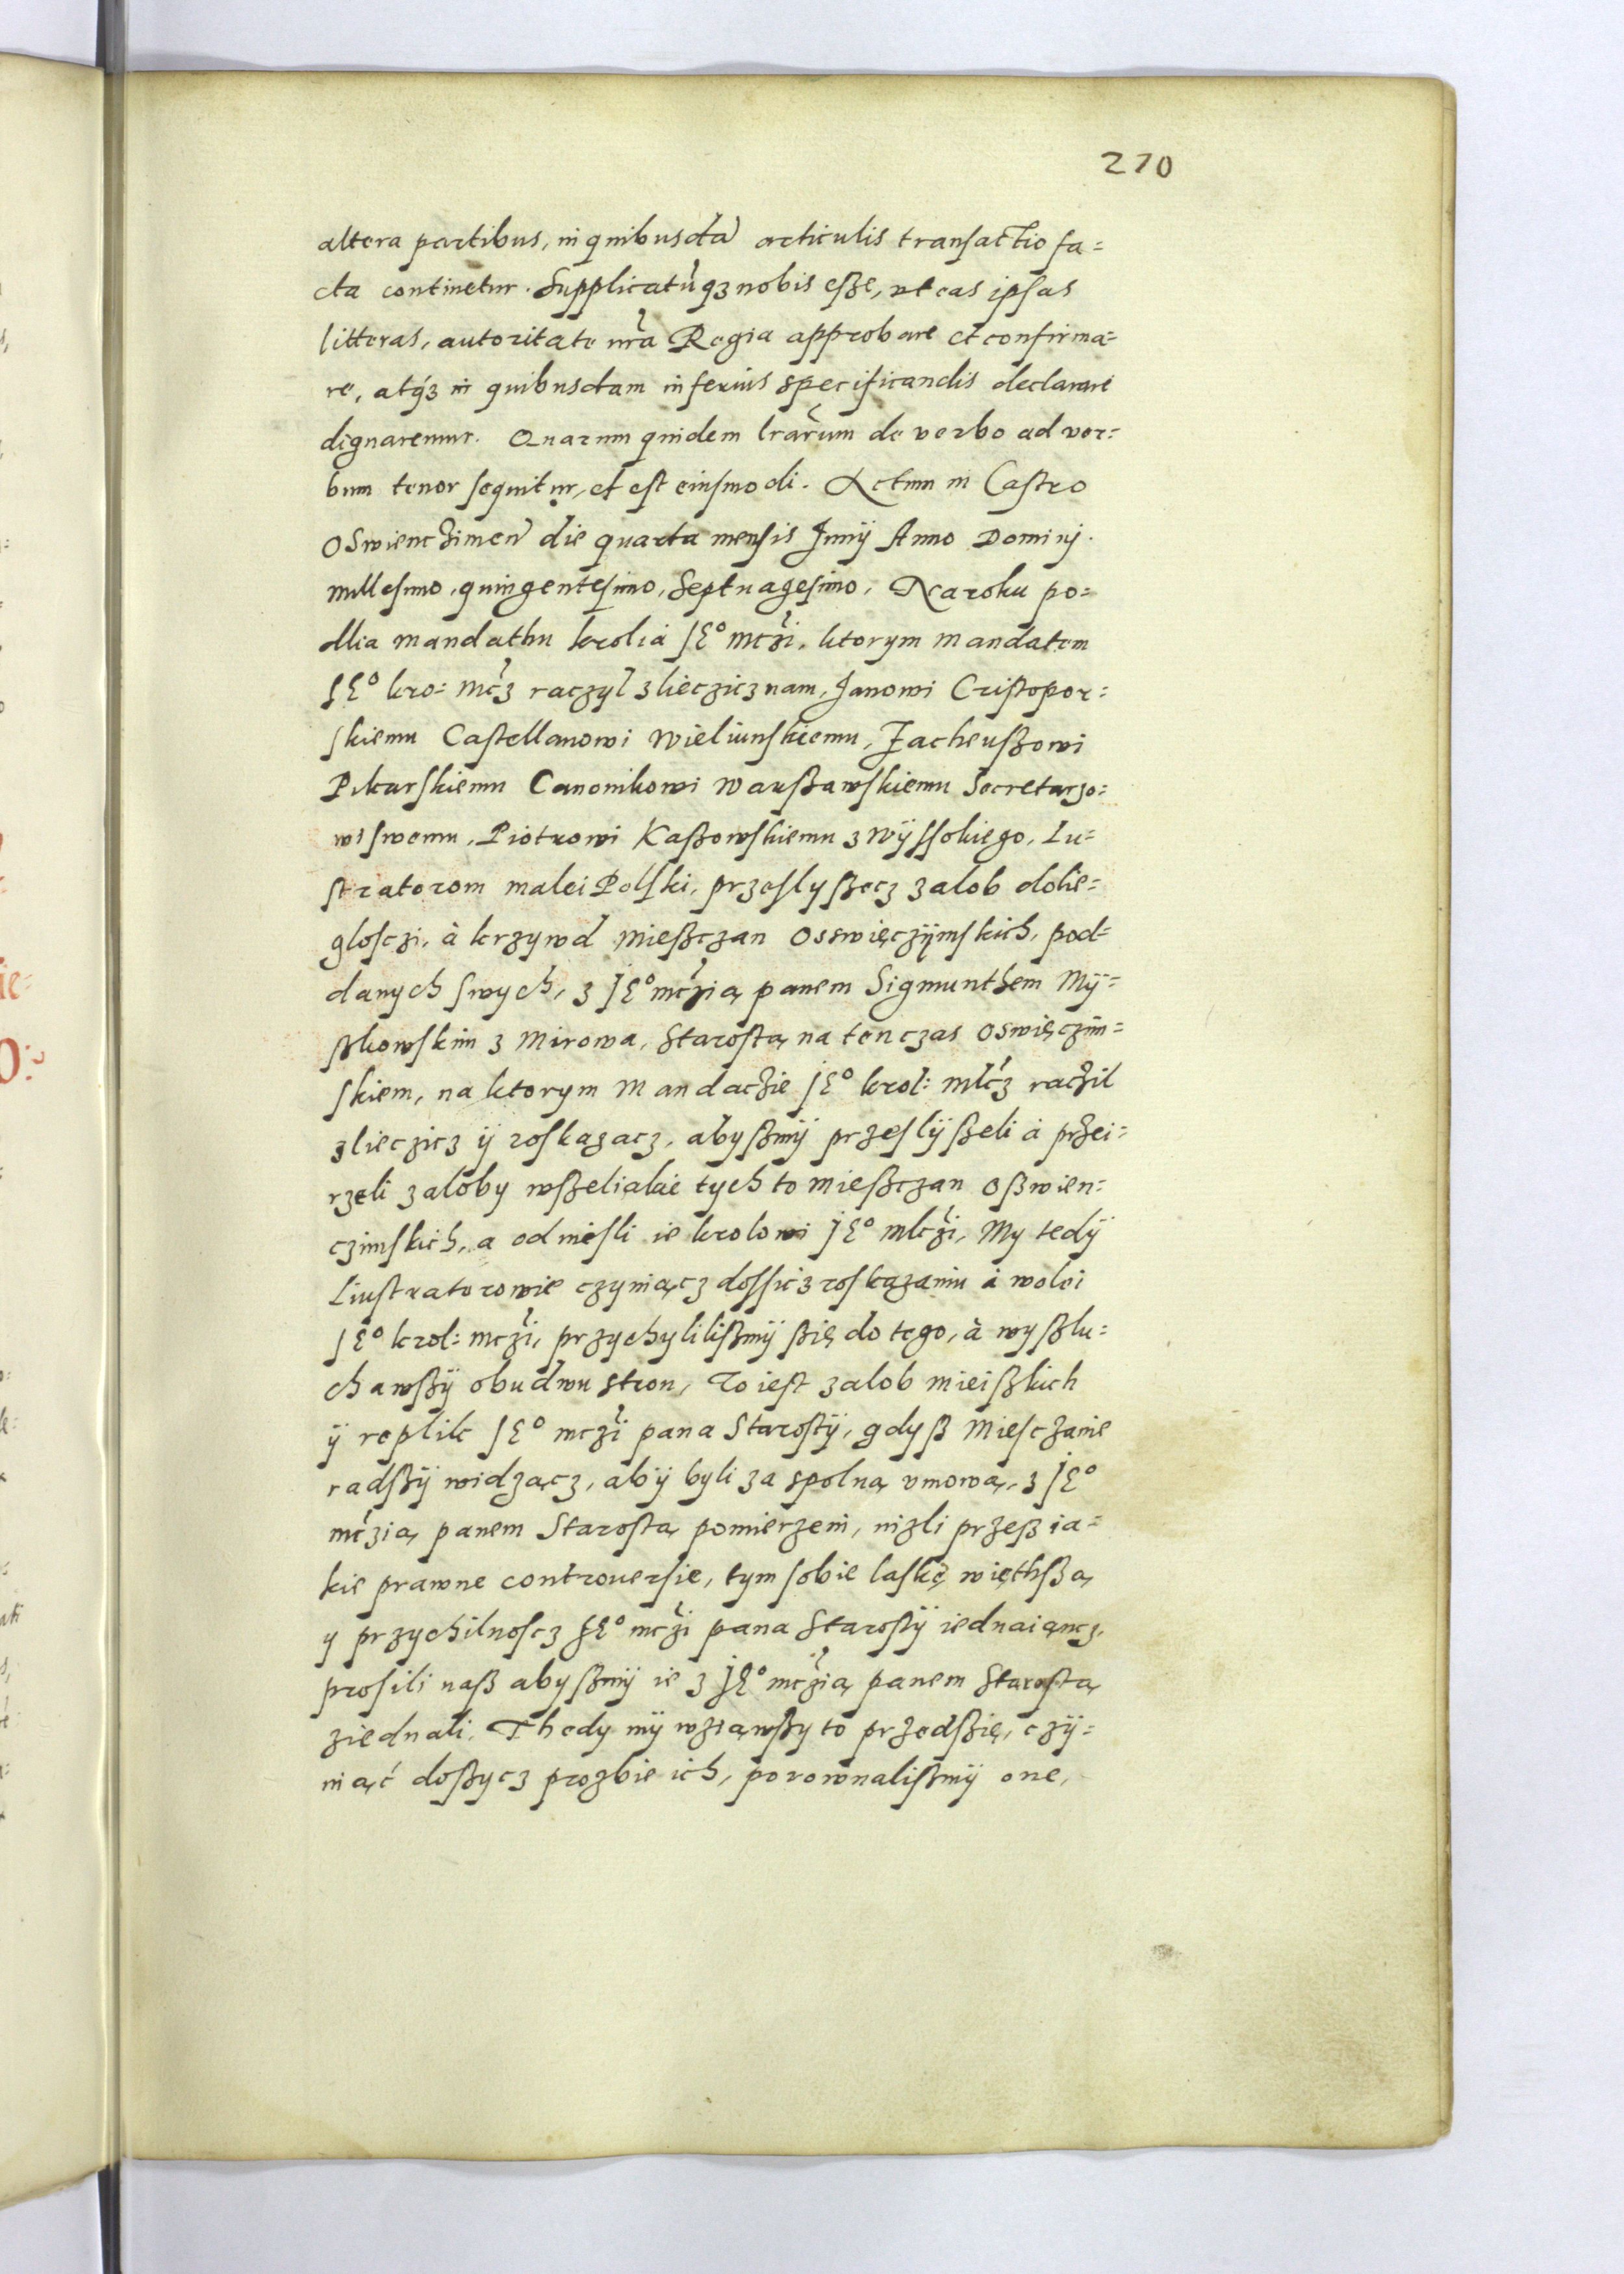 270
altera partibus, in quibusdā articulis transactio fa=
cta continetur. Supplicatūqz nobis eſße, ut eas ipsas
litteras, autoritate nr̃a Regia approbare et confirma=
re, atqz in quibusdam inferius specificandis declarare
dignaremur. Quarum quidem lrãrum de verbo ad ver=
bum tenor sequitur, et est eiusmodi. Actum in Castro
Oswienczimen̄ die quarta mensis Junij Anno Dominj.
millesimo, quingentesimo, Septuagesimo. Na roku po=
dlia mandathu krolia JE° mczi, ktorym mandatem
JE° kro: mcz raczyl zlieczicz nam, Janowi Cristopor=
skiemu Castellanowi Wieliunskiemu, Zacheußowi
Pikarskiemu Canonikowi Warßawskiemu Secretarzo=
wi swemu, Piotrowi Kaßowskiemu z Wÿssokiego, Lu=
stratorom malei Polski, przeslyßecz zalob dolie=
glosczi, à krzywd mießczan Osswięczÿmskich, pod=
danych swych, z JE° mczią panem Sigmunthem Mÿ=
ßkowskim z Mirowa, Starostą na tenczas Oswięczim=
skiem, na ktorym Mandaczie JE° krol: mlcz raczil
zlieczicz ÿ roskazacz, abyßmÿ przeslÿßeli à przei=
rzeli zaloby wßeliakie tych to mießczan Oßwien=
czimskich, a odniesli ie krolowi JE° mlczi, My tedÿ
Liustratorowie czyniącz dossicz roskazaniu à wolei
JE° krol: mczi, przychylilißmÿ ßię do tego, à wyßlu=
chawßÿ obudwu stron, To iest zalob mieißkich
ÿ replik JE° mczi pana Starostÿ, gdyß Miesczanie
radßÿ widzącz, abÿ byli za spolną umową, z JE°
mczią panem Starostą pomierzeni, nizli przeß ia=
kie prawne controuersie, tym sobie laskę więthßą
y przychilnoscz JE° mczi pana Starostÿ iednaiąncz,
prosili naß abyßmÿ ie z JE° mczią panem Starostą
ziednali. Thedy mÿ wziąwßy to przedßię, czÿ=
niąć doßycz prozbie ich, porownalißmÿ one,